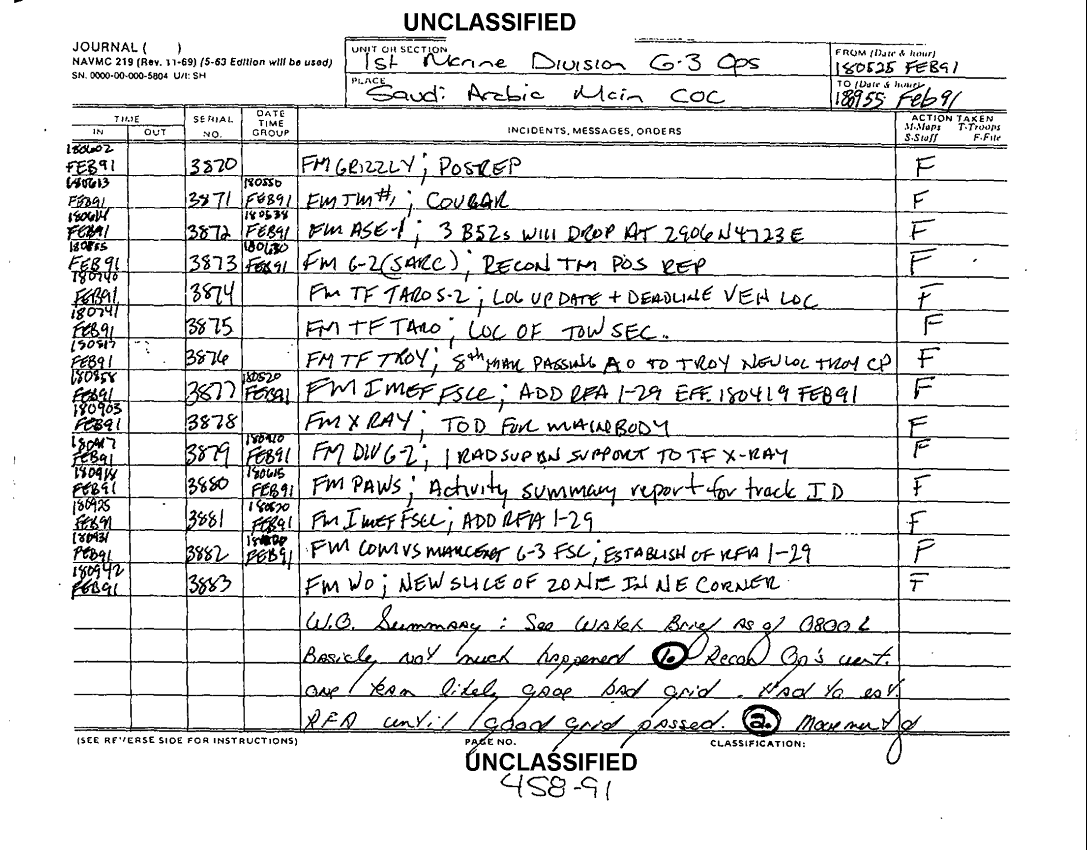 UNCLASSIFIED
JOURNAL ( )
NAVMC 219 (Rev. 11-69) (5-63 Edition will be used)
SN. 0000-00-000-5804 U/I: SH
UNIT OR SECTION
1st Marine Division G-3 Ops
FROM (Date & hour)
180525 FEB91
PLACE
Saudi Arabia Main COC
TO (Date & hour)
180955 Feb 91
TIME
IN OUT
SERIAL NO.
DATE TIME GROUP
INCIDENTS, MESSAGES, ORDERS
ACTION TAKEN
M-Maps T-Troops
S-Staff F-File
180602 FEB91 3870 FM GRIZZLY; POSREP F
180613 FEB91 3871 180550 FEB91 FM TM #1; COUGAR F
180614 FEB91 3872 180538 FEB91 FM ASE-1; 3 B52s WILL DROP AT 2906N4723E F
FEB91 3873 180630 FEB91 FM G-2 (SARC); RECON TM POS REP F
180740 FEB91 3874 FM TF TARO S-2; LOG UPDATE + DEADLINE VEH LOC F
180741 FEB91 3875 FM TF TARO; LOC OF TOW SEC. F
180817 FEB91 3876 FM TF TROY; 8th MAR PASSING AO TO TROY NEW LOC TROY CP F
180858 FEB91 3877 180520 FEB91 FM I MEF FSCC; ADD RFA 1-29 EFF. 180419 FEB91 F
180903 FEB91 3878 FM X RAY; TOD FOR MAINBODY F
180917 FEB91 3879 180910 FEB91 FM DIV G-2; 1 RADSUPBN SUPPORT TO TF X-RAY F
180918 FEB91 3880 180615 FEB91 FM PAWS; Activity summary report for track ID F
180925 FEB91 3881 180820 FEB91 FM I MEF FSCC; ADD RFA 1-29 F
180931 FEB91 3882 FEB91 FM COMUSMARCENT G-3 FSC; ESTABLISH OF RFA 1-29 F
180942 FEB91 3883 FM WO; NEW SLICE OF ZONE IN NE CORNER F
W.O. Summary: See Watch Brief As of 0800 L
Basicly not much happened 1. Recon Op's cont.
one team likely gave bad grid. Had to est.
RFA until good grid passed. 2. Movement of
(SEE REVERSE SIDE FOR INSTRUCTIONS)
PAGE NO.
CLASSIFICATION:
UNCLASSIFIED
458-91